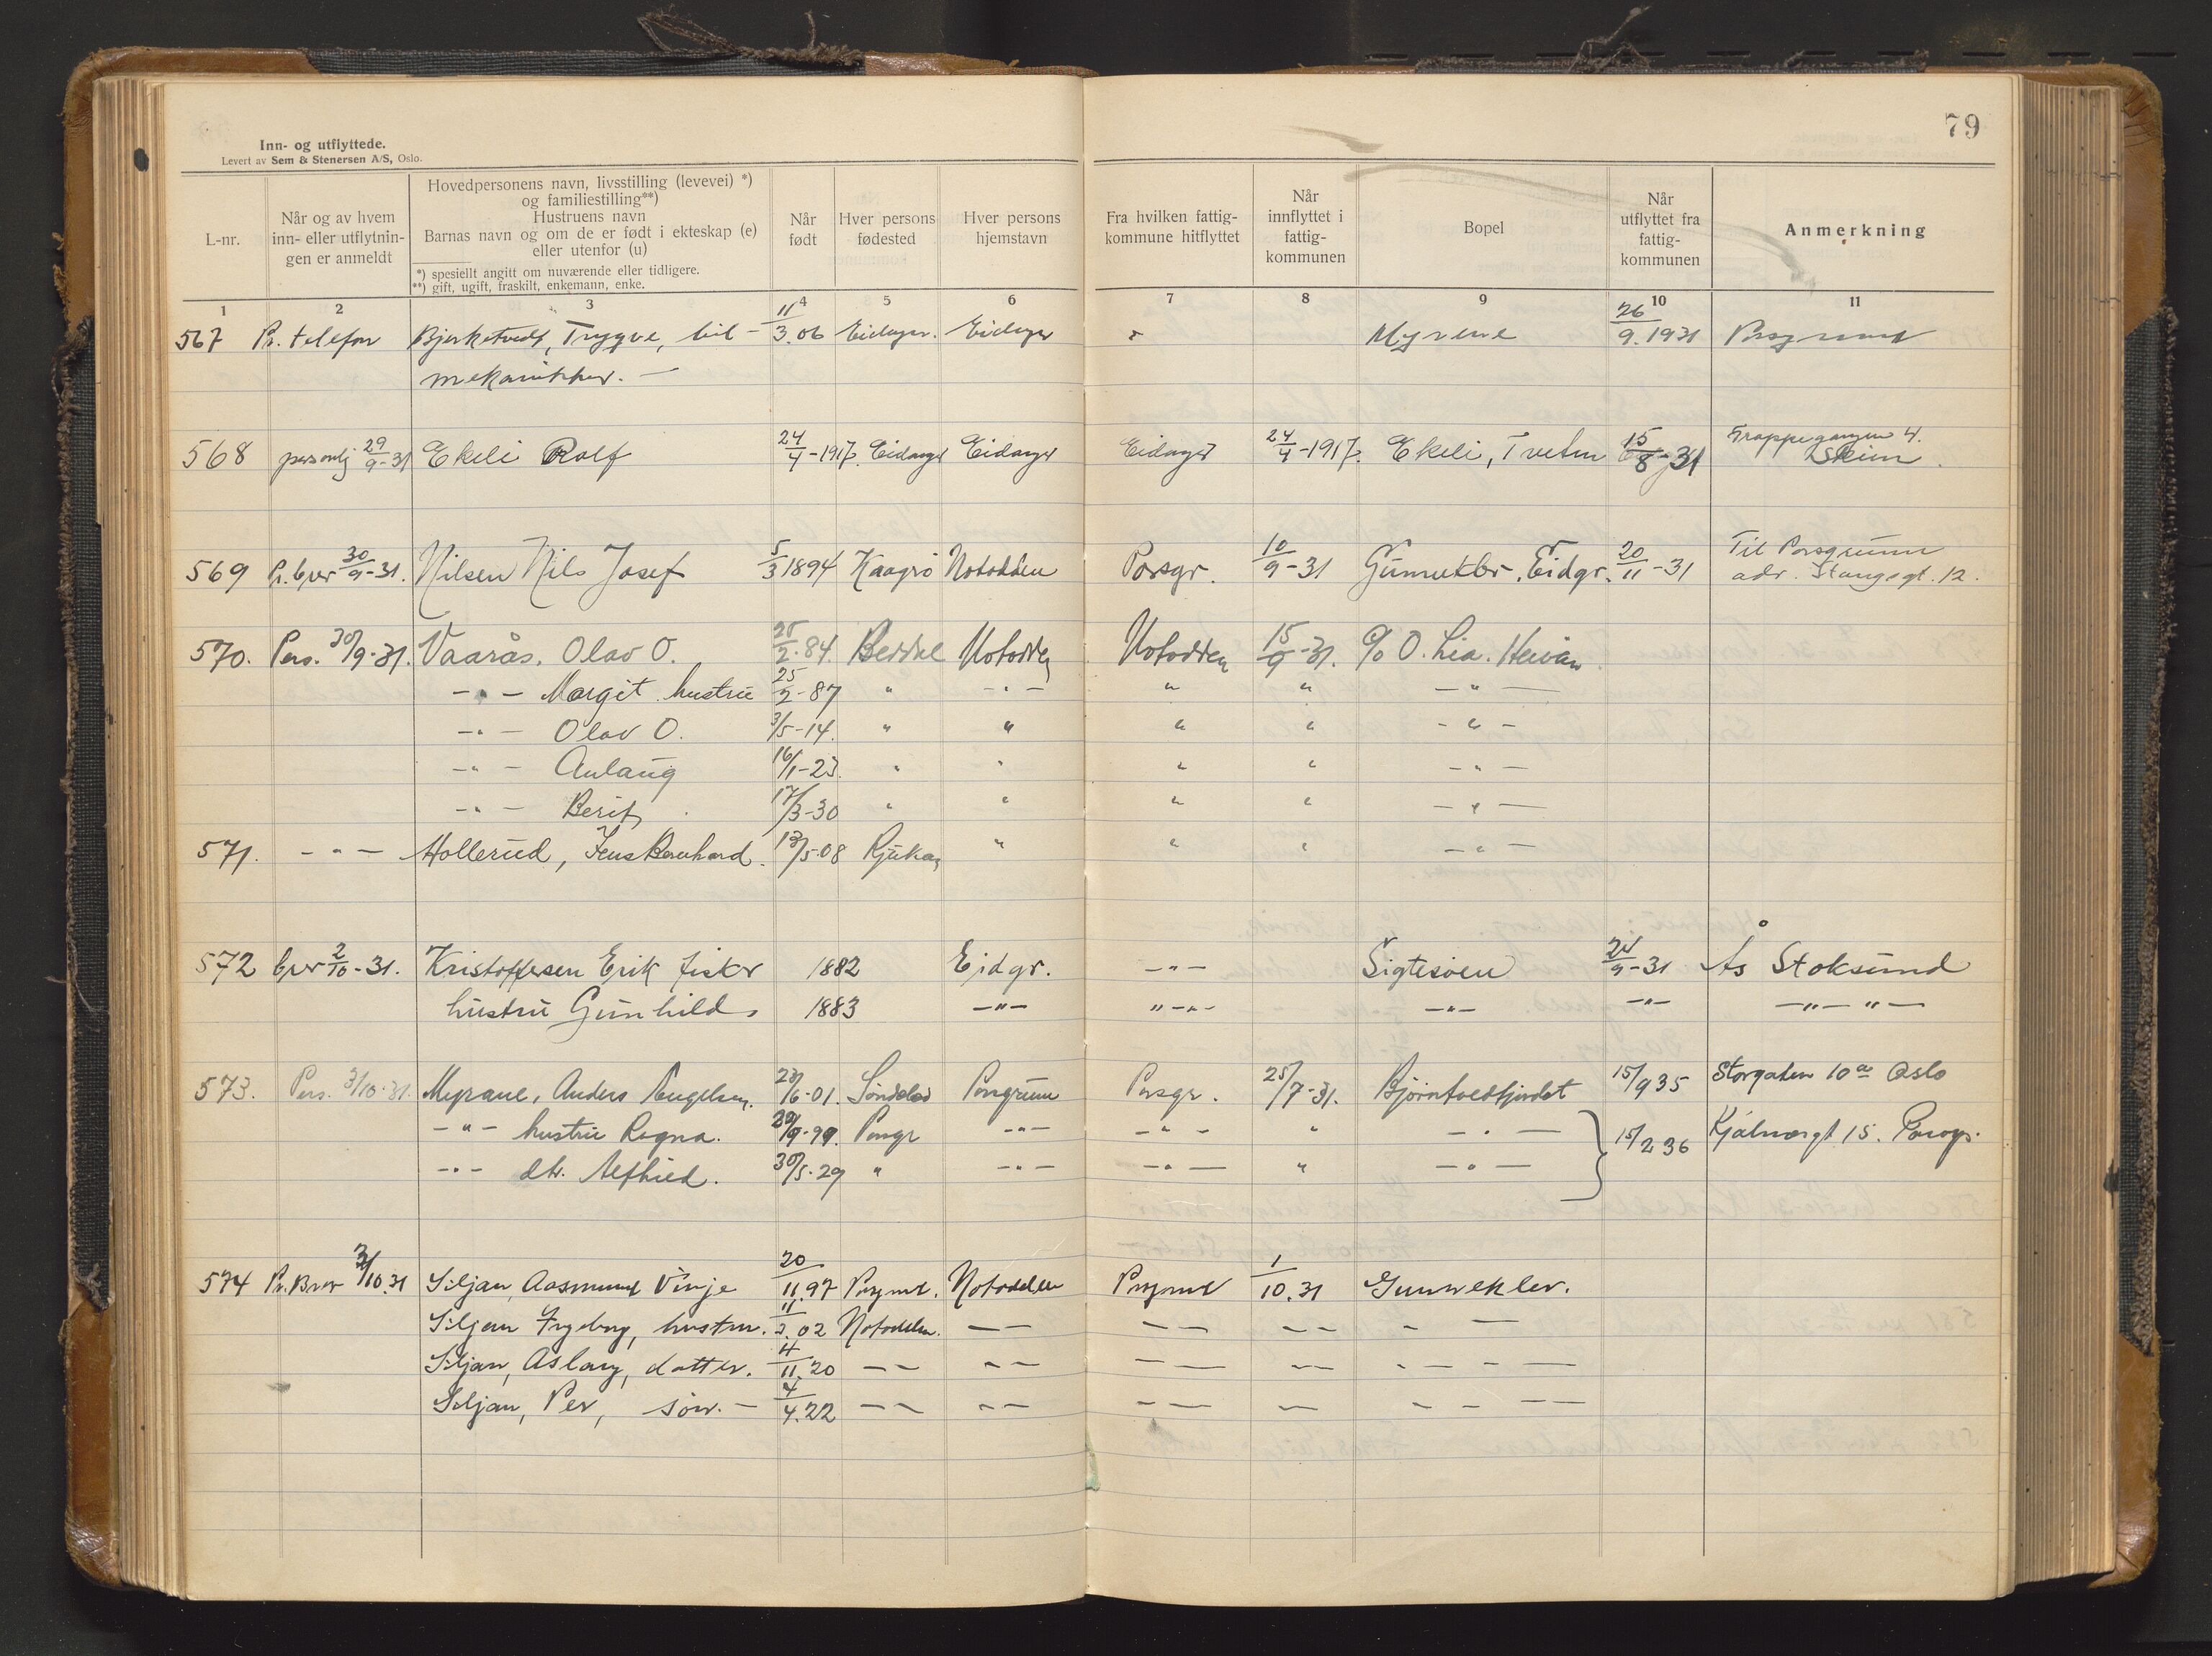 79
Inn- og utflyttede.
Levert av Sem & Stenersen A/S, Oslo.
L-nr.
Når og av hvem
inn- eller utflytnin-
gen er anmeldt
Hovedpersonens navn, livsstilling (levevei) *)
og familiestilling**)
Hustruens navn
Barnas navn og om de er født i ekteskap (e)
eller utenfor (u)
*) spesiellt angitt om nuværende eller tidligere.
**) gift, ugift, fraskilt, enkemann, enke.
Når
født
Hver persons
fødested
Hver persons
hjemstavn
Fra hvilken fattig-
kommune hitflyttet
Når
innflyttet i
fattig-
kommunen
Bopel
Når
utflyttet fra
fattig-
kommunen
Anmerkning
1 2 3 4 5 6 7 8 9 10 11
567 Pr. telefon Bjerketvedt, Trygve, bil- 11/3.06 Eidanger. Eidanger Myrene 26/9.1931 Porsgrund
mekanikker. —
568 personlig 29/9-31 Ekeli Rolf 24/4-1917. Eidanger Eidanger Eidanger 24/4-1917. Ekeli, Tveten 15/8-31 Trappegangen 4.
Skien.
569 Pr. brev 30/9-31. Nilsen Nils Josef 5/3 1894 Kaagrø Notodden Porsgr. 10/9-31 Gunneklev, Eidgr. 20/11-31 Til Porsgrunn
adr. Stangsgt. 12.
570. Pers. 30/9-31. Vaarås, Olav O. 25/2-84. Heddal Notodden Notodden 15/9-31. c/o O. Lia. Heivan
-"- Margit hustru 25/2-87 " -"- " " -"-
-"- Olav O. 3/5-14. " " " " -"-
-"- Aulaug 16/1-23. " " " " -"-
-"- Berit 17/3-30 " " " " -"-
571. -"- Hollerud, Jens Bernhard. 13/5.08 Rjukan " " " -"-
572 brev 2/10-31. Kristoffersen Erik fisker 1882 Eidgr. -"- Sigtesøen 24/9-31 Ås Stoksund
hustru Gunhild 1883 -"- "-"- -"- -"- -"- "-
573. Pers. 3/10-31. Myrane, Anders Engelsen. 23/6-01. Søndeled Porsgrunn Porsgr. 25/7-31. Bjørntvedtjordet 15/9 35 Storgaten 10a Oslo
-"- hustru Ragna. Porsgr -"- -"- " -"- 15/2 36 Kjølnesgt 15. Porsgr.
-"- dtr. Alfhild. 30/5-29 " -"- -"- " -"-
574 Pr. Brev 3/10.31 Siljan, Aasmund Vinje 20/11.97 Porsgrd. Notodden Porsgrund 1/10.31 Gunneklev.
Siljan Ingeborg, hustru. 11/2.02 Notodden. — — — — — — — —
Siljan, Aslaug, datter. 4/11.20 — — — — — — — — — — — —
Siljan, Per, sønn. — 4/4.22 — — — — — — — — — — —